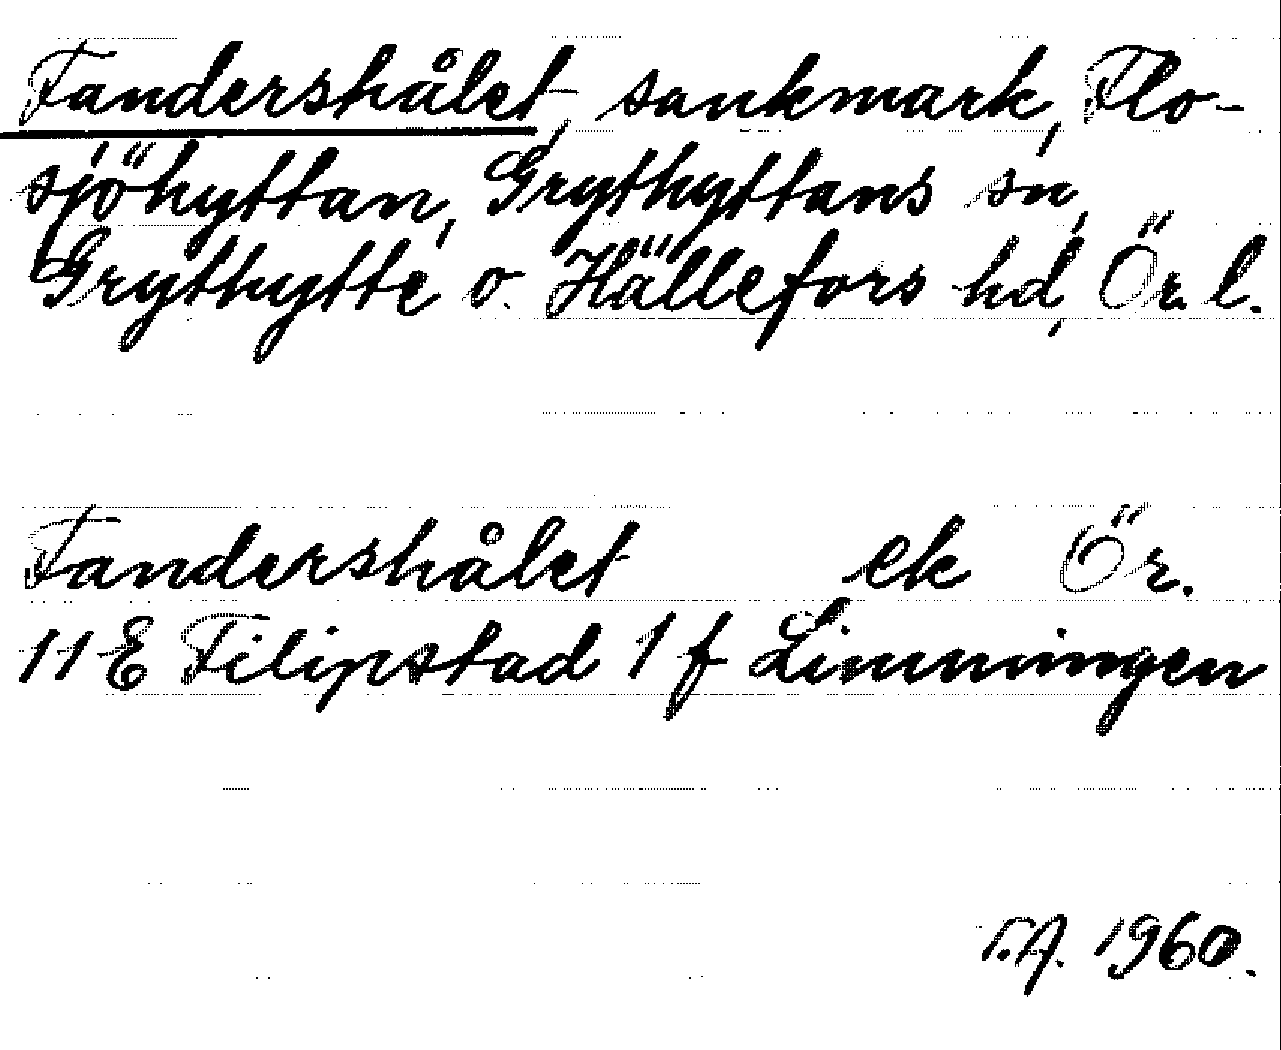 Fandershålet, sankmark, Flo-
sjöhyttan, Grythyttans sn,
Grythytte o. Hällefors hd, Ör. l.
Fandershålet ek Ör.
11 E Filipstad 1 f Limningen
1960.